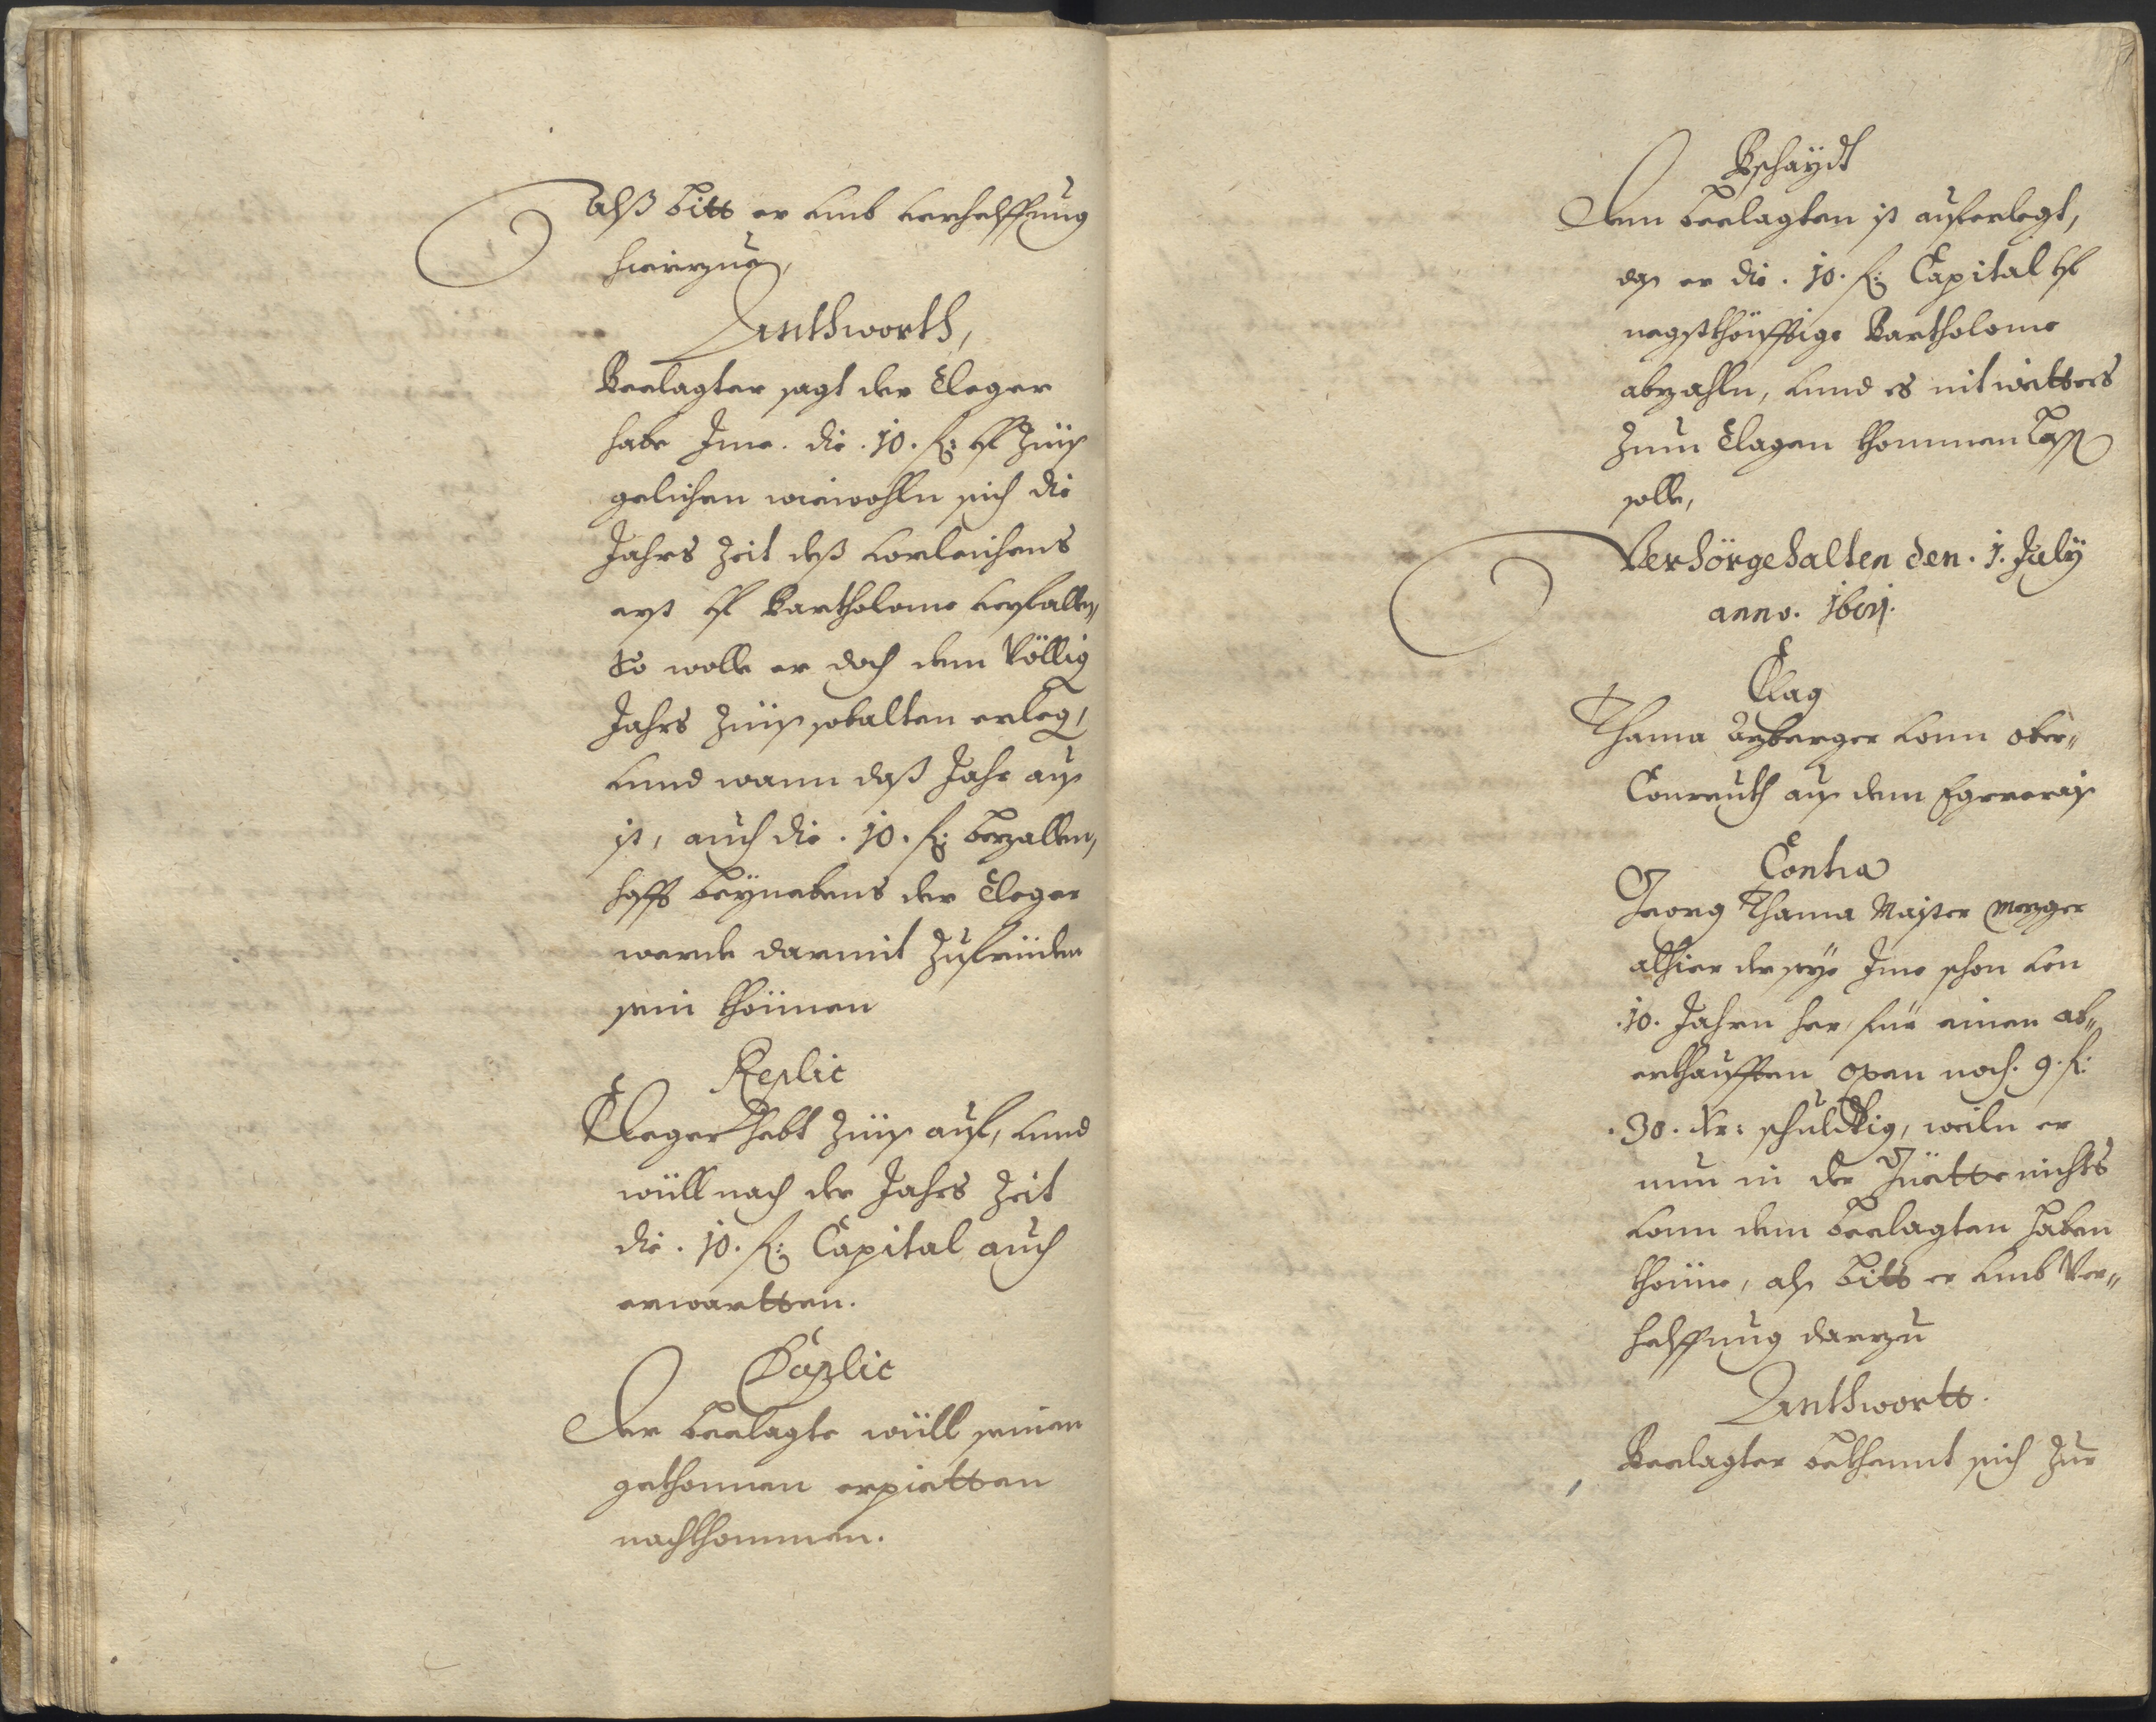 Alß bitt er umb verhelffung
hierzue,
Anthworth,
Beclagter sagt der Cleger
habe Jme. die. 10. fl: uf Zünß
gelichen wiewohln sich die
Jahrs Zeit deß vorleichens
erst uf Bartholome verfallen,
So wolle er doch dem Völlig
Jahrs Zünß sobalten erleg,
vnnd wann daß Jahr auß
ist, auch die. 10. fl: bezallen,
hoffs beynebens der Cleger
werde darmit Zufrüden
sein khönnen
Replic
Cleger hebt Zünß auf, vnnd
wüll nach der Jahrs Zeit
die. 10. fl: Capital auch
erwartten.
Duplic
Der beclagte wüll seinen
gethonnen erpietten
nachkhommen.
Bschaydt
Dem beclagten ist auferlegt,
daß er die. 10. fl: Capital uf
negstkhönfftige Bartholome
abzahln, vnnd es nit weitters
Zum Clagen khommen lassen
solle,
Verhör gehalten den. 1. July
anno.
Clag
Thoma vonn ober„
Conreuth auß dem Egrerecraiß
Contra
Georg Thoma Maister Mezger
alhier der seye Jme schon von
.10. Jahrn her, für einen ab„
erkhaufften oxen noch. 9. fl:
.30. kr: schuldtig, weiln er
nun in der Güette nichts
vonn dem beclagten haben
khönne, alß bitt er vmb Ver„
helffung darzu
Anthwortt.
Beclagter bekhennt sich Zur